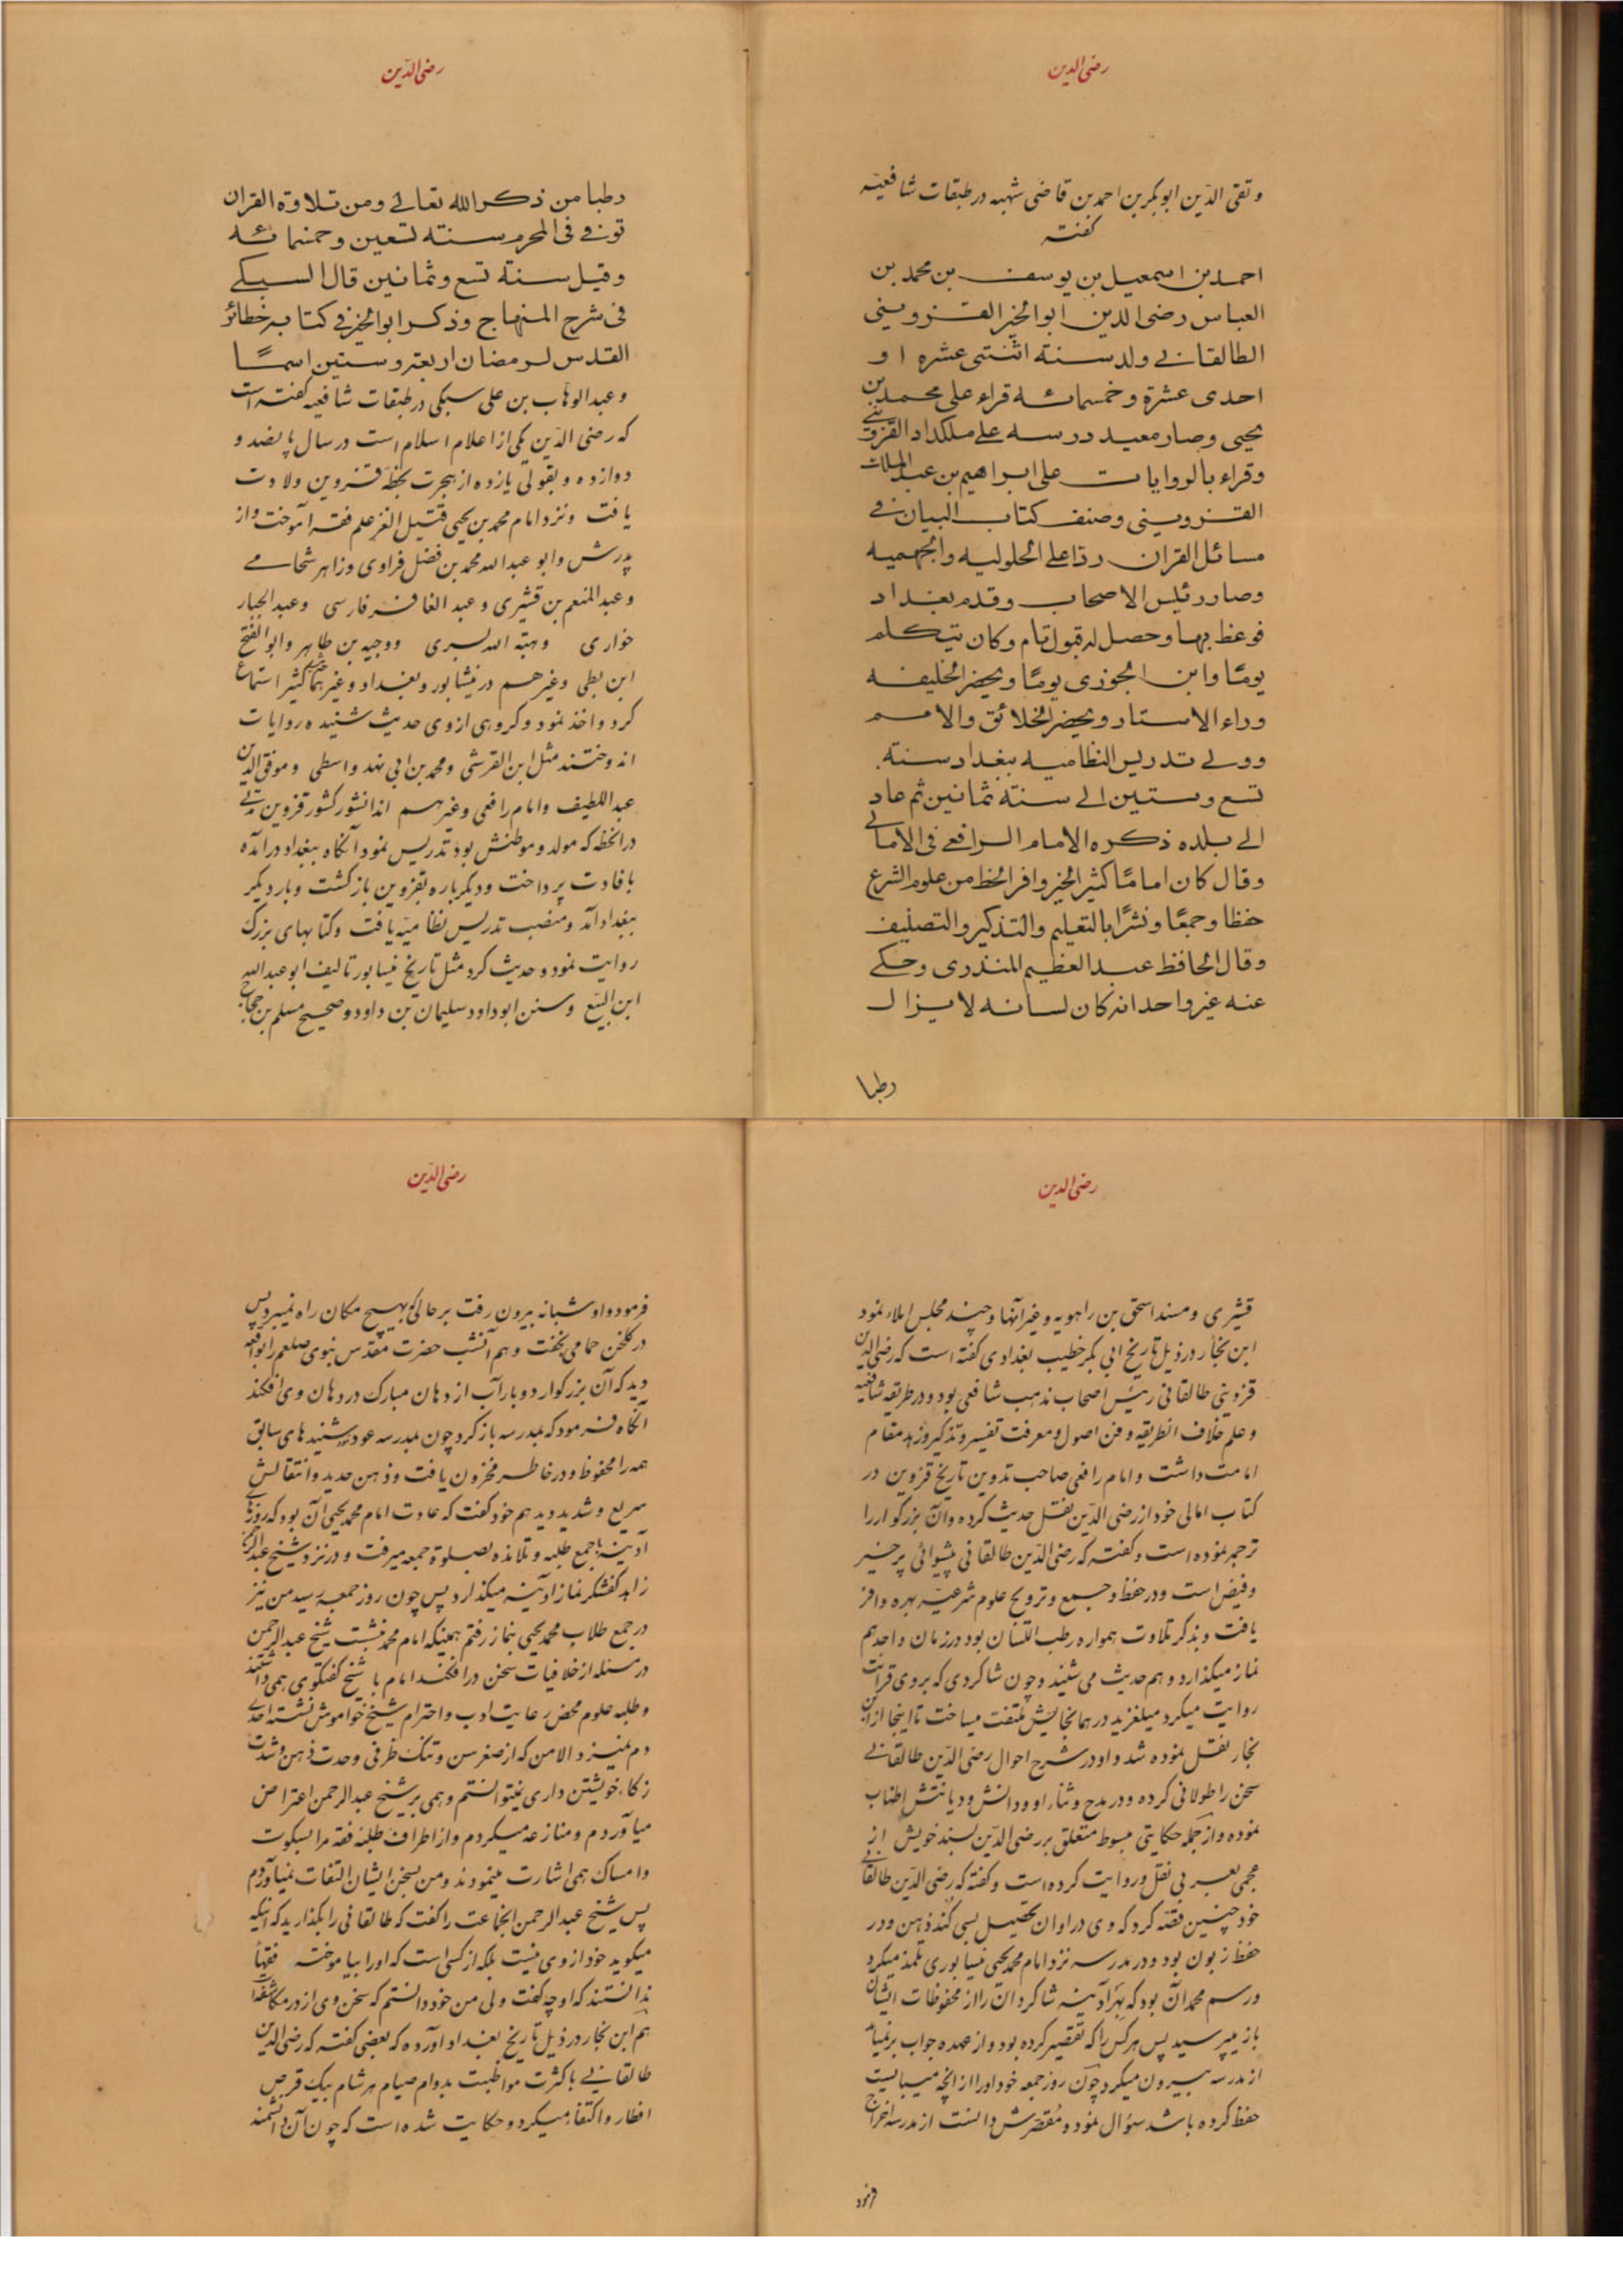 رضی الدین
و تقی الدّین ابوبکر بن احمد بن قاضی شهبه در طبقات شافعیّه
کفته
احمد بن اسمعیل بن یوسف بن محمد بن
العباس رضی الدین ابوالخیر القزوینی
الطالقانے ولد سنة اثنتی عشره او
احدی عشرة و خمسمائه قراء علی محمد بن
یحیی وصار معید درسه علے ملکداد القزوینے
وقراء بالروایات علی ابراهیم بن عبد الملك
القزوینی وصنف کتاب البیان فے
مسائل القران ردّا علے الحلولیه والجهمیه
وصار رئیس الاصحاب وقدم بغداد
فوعظ بها وحصل له قبول تام وکان یتکلم
یومًا وابن الجوزی یومًا ویحضر الخلیفه
وراء الاستار ویحضر الخلائق والامم
وولے تدریس النظامیه ببغداد سنة
تسع وستین الے سنة ثمانین ثم عاد
الے بلده ذکره الامام الرافعے فی الامالے
وقال کان امامًا کثیر الخیر وافر الحظ من علوم الشرع
حفظا وجمعًا ونشرًا بالتعلیم والتذکیر والتصنیف
وقال الحافظ عبد العظیم المنذری وحکے
عنه غیر واحد انه کان لسانه لا یزال
رطبا
رضی الدّین
رطبا من ذکر الله تعالے ومن تلاوة القران
توفے فی المحرم سنة تسعین وخمسمائه
وقیل سنة تسع وثمانین قال السبکے
فی شرح المنهاج وذکر ابو الخیر فے کتابه خطائر
القدس لرمضان اربعة وستین اسمًا
و عبد الوهاب بن علی سبکی در طبقات شافعیه کفته است
که رضی الدّین یکی از اعلام اسلام است در سال پانصد و
دوازده و بقولی یازده از هجرت بخطّهٔ قزوین ولادت
یافت و نزد امام محمد بن یحیی قتیل الغز علم فقه آموخت و از
پدرش و ابو عبدالله محمد بن فضل فراوی و زاهر شحامے
و عبد المنعم بن قشیری و عبد الغافر فارسی و عبد الجبار
خواری و هبة الله بسری و وجیه بن طاهر و ابو الفتح
ابن بطی و غیرهم در نیشابور و بغداد و غیرهما کثیر استماع
کرد و اخذ نمود و کروهی از وی حدیث شنیده روایات
اندوختند مثل ابن القرشی و محمد بن ابی نهد واسطی و موفق الدین
عبد اللطیف و امام رافعی و غیرهم اندانشور کشور قزوین مدتے
در انخطه که مولد و موطنش بود تدریس نمود آنکاه ببغداد در آمده
بافادت پرداخت و دیکر باره بقزوین بازکشت و بار دیکر
ببغداد آمد و منصب تدریس نظامیّه یافت و کتابهای بزرک
روایت نمود و حدیث کرد مثل تاریخ نیسابور تالیف ابو عبدالله
ابن البیّع و سنن ابو داود سلیمان بن داود و صحیح مسلم بن حجاج
رضی الدین
قشیری و مسند اسحق بن راهویه و غیر آنها و چند مجلس املاء نمود
ابن نجار در ذیل تاریخ ابی بکر خطیب بغدادی کفته است که رضی الدین
قزوینی طالقانی رئیس اصحاب مذهب شافعی بود و در طریقه شافعیه
و علم خلاف انطریقه و فن اصول و معرفت تفسیر و تذکیر و زهد مقام
امامت داشت و امام رافعی صاحب تدوین تاریخ قزوین در
کتاب امالی خود از رضی الدّین نقل حدیث کرده و آن بزرکوار را
ترجمه نموده است و کفته که رضی الدّین طالقانی پیشوائی پر خیر
و فیض است و در حفظ و جمع و ترویج علوم شرعیّه بهره وافر
یافت و بذکر تلاوت همواره رطب اللسان بود در زمان واحد هم
نماز میکذارد و هم حدیث می شنید و چون شاکردی که بر وی قرائت
روایت میکرد میلغزید در همانجایش ملتفت میساخت تا اینجا از ابن
نجار نقل نموده شد و او در شرح احوال رضی الدّین طالقانے
سخن را طولانی کرده و در مدح و ثناء او و دانش و دیانتش اطناب
نموده و از جمله حکایتی مبسوط متعلق برضی الدّین بسند خویش از
نقل و روایت کرده است و کفته که رضی الدّین طالقانے
خود چنین قصّه کرد که وی در اوان تحصیل بسی کند ذهن و در
حفظ زبون بود و در مدرسه نزد امام محمد یحیی نیسابوری تلمّذ میکرد
و رسم محمد آن بود که بهر آدینه شاکردان را از محفوظات ایشان
باز میپرسید پس هر کس را که تقصیر کرده بود و از عهده جواب بر نمیآمد
از مدرسه بیرون میکرد چون روز جمعه خود او را از انچه میبایست
حفظ کرده باشد سؤال نمود و مقصّرش دانست از مدرسه اخراج
فرمود
رضی الدّین
فرمود و او شبانه بیرون رفت بر حالی که بهیچ مکان راه نمیبرد پس
در کلخن حمامی بخفت و هم آنشب حضرت مقدّس نبوی صلعم را بواقعه
دید که آن بزرکوار دو بار آب از دهان مبارک در دهان وی افکند
آنکاه فرمود که بمدرسه باز کرد چون بمدرسه عود شنیدهای سابق
همه را محفوظ و در خاطر مخزون یافت و ذهن حدید و انتقالش
سریع و شدید دید هم خود کفت که عادت امام محمد یحیی آن بود که روزهاے
آدینه با جمع طلبه و تلامذه بصلوة جمعه میرفت و در نزد شیخ عبد الرحمن
زاهد کفشکر نماز ادینه میکذارد پس چون روز جمعه رسید من نیز
در جمع طلاب محمد یحیی بنماز رفتم همینکه امام محمد بنشست شیخ عبد الرحمن
در مسئله از خلافیات سخن در افکند امام با شیخ کفتکوی همی داشتند
و طلبه علوم محض رعایت ادب و احترام شیخ خواموش نشسته احدے
دم نمیزد الا من که از صغر سن و تنک ظرفی و حدت ذهن و شدت
زکاء خویشتن داری نمیتوانستم و همی بر شیخ عبد الرحمن اعتراض
میآوردم و منازعه میکردم و از اطراف طلبهٔ فقه مرا بسکوت
و امساک همی اشارت مینمودند و من بسخن ایشان التفات نمیآوردم
پس شیخ عبد الرحمن انجماعت را کفت که طالقانی را بکذارید که اینکه
میکوید خود از وی نیست بلکه از کسی است که او را بیاموخته فقهاء
ندانستند که او چه کفت ولی من خود دانستم که سخن وی از در مکاشفه
هم ابن نجار در ذیل تاریخ بغداد اورده که بعضی کفته که رضی الدین
طالقانے با کثرت مواظبت بدوام صیام هر شام بیک قرص
افطار و اکتفا میکرد و حکایت شده است که چون آن دانشمند